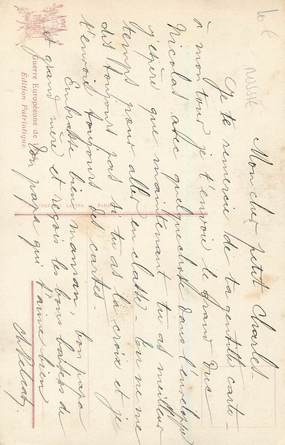 Mon cher petit Charles
Je te remercie de ta gentille carte
à mon tour je t'envoie le grand Duc
Nicolas avec quelquechose dans l'enveloppe
j'espère que maintenant tu as meilleur
temps pour aller en classe tu ne me
dis toujours pas si tu as la croix et je
t'envoie toujours des cartes.
Embrasse bien maman, bon papa
et grand mère et reçois les bons baisers de
ton papa qui t'aime bien
Guerre Européenne de
Édition Patriotique
russie